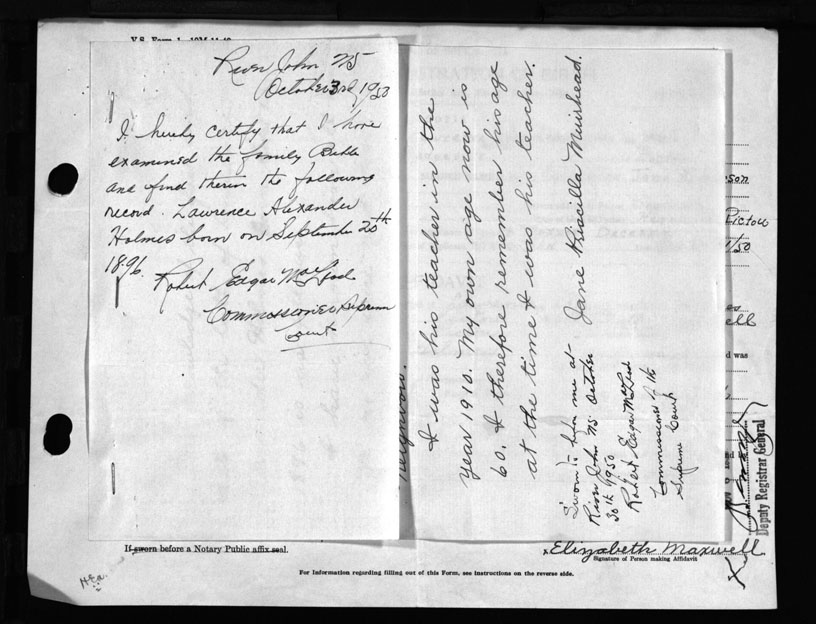 V.S. Form 1
River John NS
October 3rd 1950
I hereby certify that I have
examined the family Bible
and find therin the following
record. Lawrence Alexander
Holmes born on September 20th
1896.
Robert Edgar McLeod
Commissioner Supreme
Court
I was his teacher in the
year 1910. My own age now is
60. I therefore remember his age
at the time I was his teacher.
Jane Priscilla Muirhead.
Sworn to before me at
River John NS. October
30th 1950
Robert Edgar McLeod
Commissioner of the
Supreme Court
son
Pictou
/50
ell
d was
Deputy Registrar General
If sworn before a Notary Public affix seal.
x Elizabeth Maxwell
Signature of Person making Affidavit
For Information regarding filling out of this Form, see instructions on the reverse side.